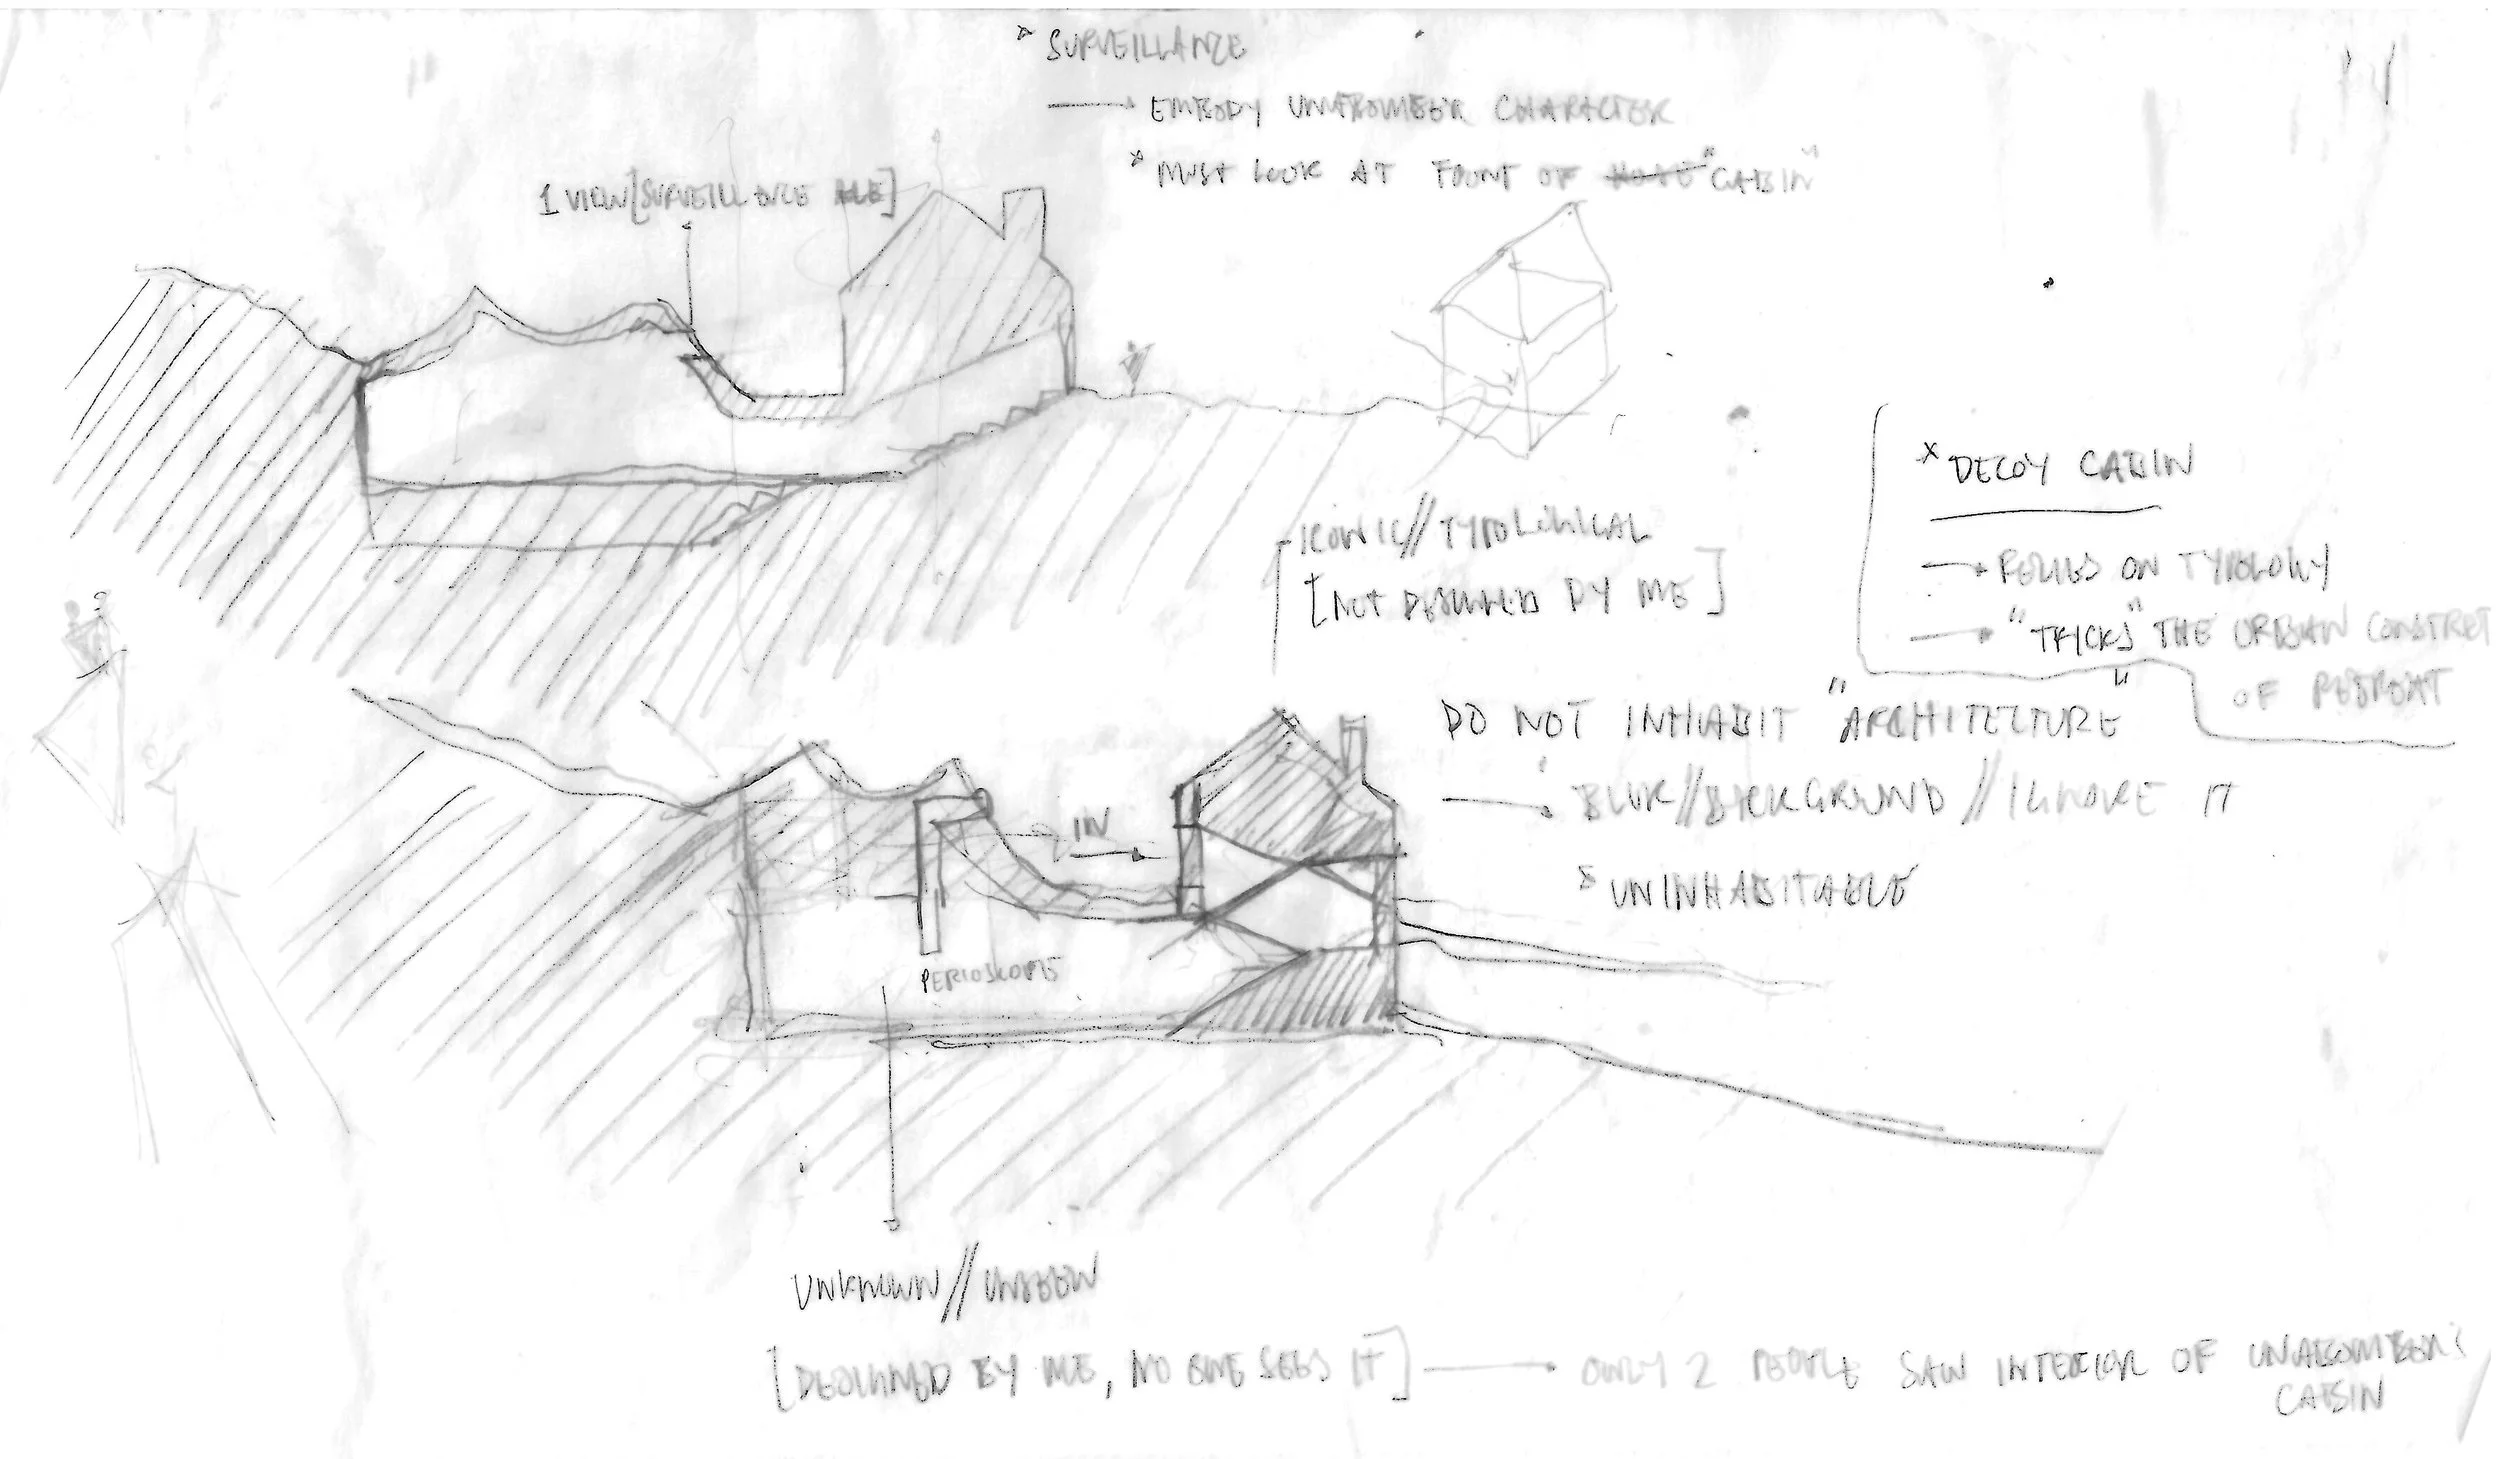 * SURVEILLANCE
→ EMBODY UNABOMBER CHARACTER
* MUST LOOK AT FRONT OF "CABIN"
1 VIEW [SURVEILLANCE]
* DECOY CABIN
→ RELIES ON TYPOLOGY
→ "TRICKS" THE URBAN CONSTRCT
OF RETREAT
ICONIC // TYPOLOGICAL
[NOT DESIGNED BY ME]
DO NOT INHABIT "ARCHITECTURE"
→ BLUR // BACKGROUND // IGNORE IT
* UNINHABITABLE
IN
PERIOSCOPES
UNKNOWN // UNSEEN
[DESIGNED BY ME, NO ONE SEES IT] → ONLY 2 PEOPLE SAW INTERIOR OF UNABOMBER'S
CABIN